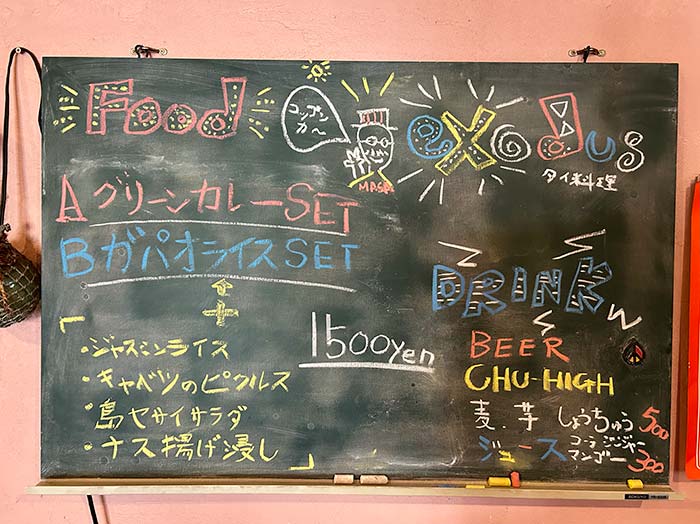 Food
コップンカ〜
MASA
exodus
タイ料理
A グリーンカレーSET
B ガパオライスSET
+
・ジャスミンライス
・キャベツのピクルス
・島ヤサイサラダ
・ナス揚げ浸し
1500yen
DRINK
BEER
CHU-HIGH
麦.芋 しょうちゅう 500
ジュース コーラ ジンジャー マンゴー 300